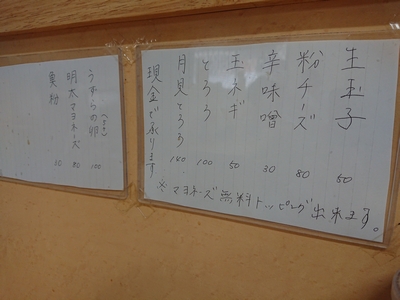 生玉子 50
粉チーズ 80
辛味噌 30
玉ネギ 50
とろろ 100
月見とろろ 140
現金で承ります
※マヨネーズ無料トッピング出来ます。
うずらの卵(5ヶ) 100
明太マヨネーズ 80
魚粉 50